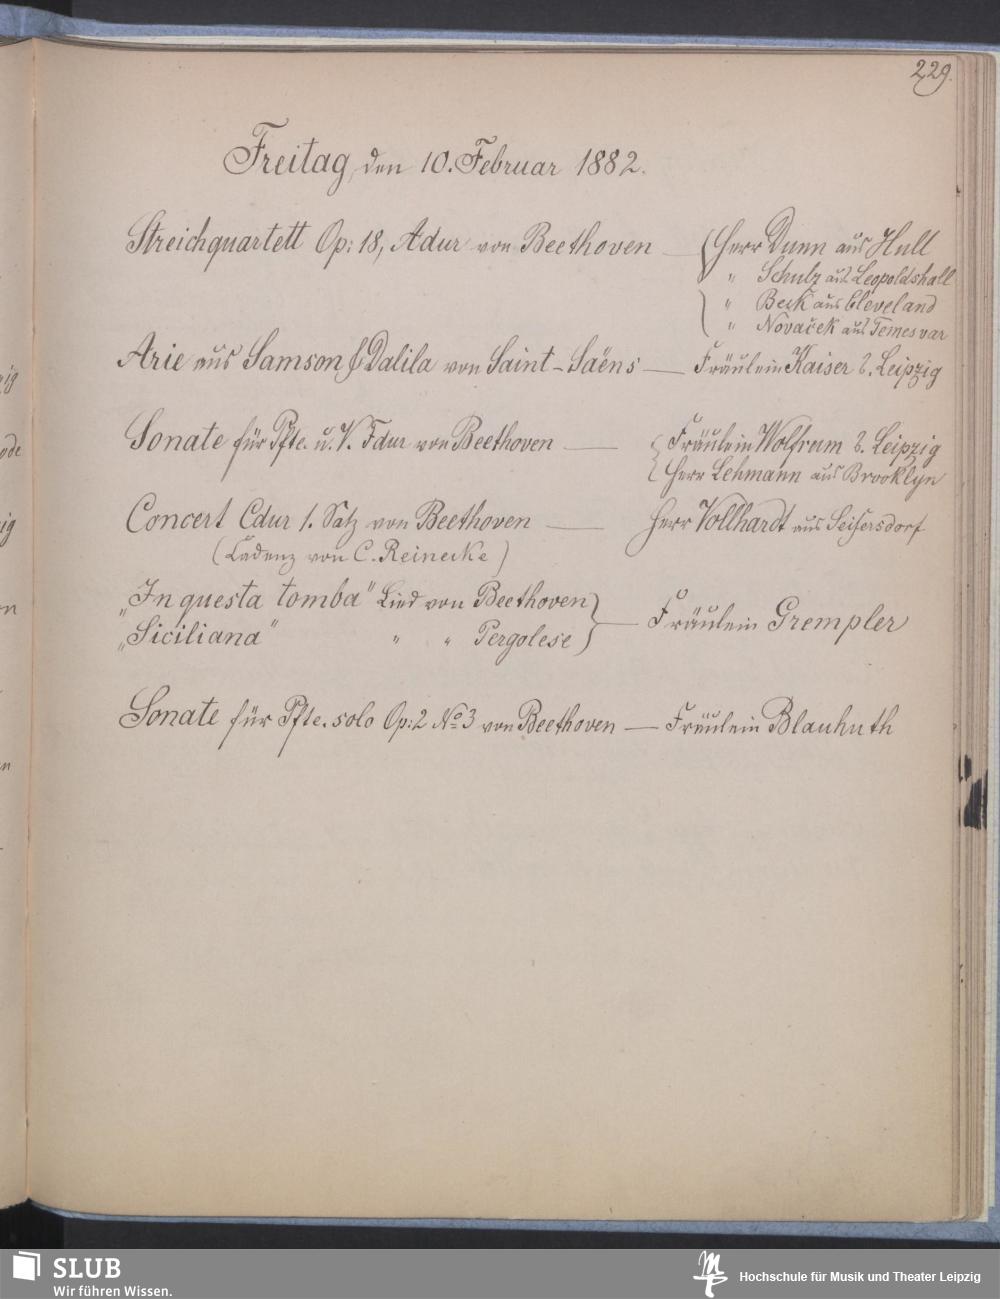 229.
Freitag, den 10. Februar 1882.
Streichquartett Op: 18, Adur von Beethoven — Herr Dunn aus Hull
" Schulz aus Leopoldshall
" Beck aus Cleveland
" Nováček aus Temesvar
Arie aus Samson & Dalila von Saint-Saëns — Fräulein Kaiser a. Leipzig
Sonate für Pfte. u. V. Fdur von Beethoven — Fräulein Wolfrum a. Leipzig
Herr Lehmann aus Brooklyn
Concert Cdur 1. Satz von Beethoven — Herr Vollhardt aus Seifersdorf
(Cadenz von C. Reinecke)
„In questa tomba" Lied von Beethoven
„Siciliana" " " Pergolese — Fräulein Grempler
Sonate für Pfte. solo Op: 2 No 3 von Beethoven — Fräulein Blauhuth
SLUB
Wir führen Wissen.
Hochschule für Musik und Theater Leipzig